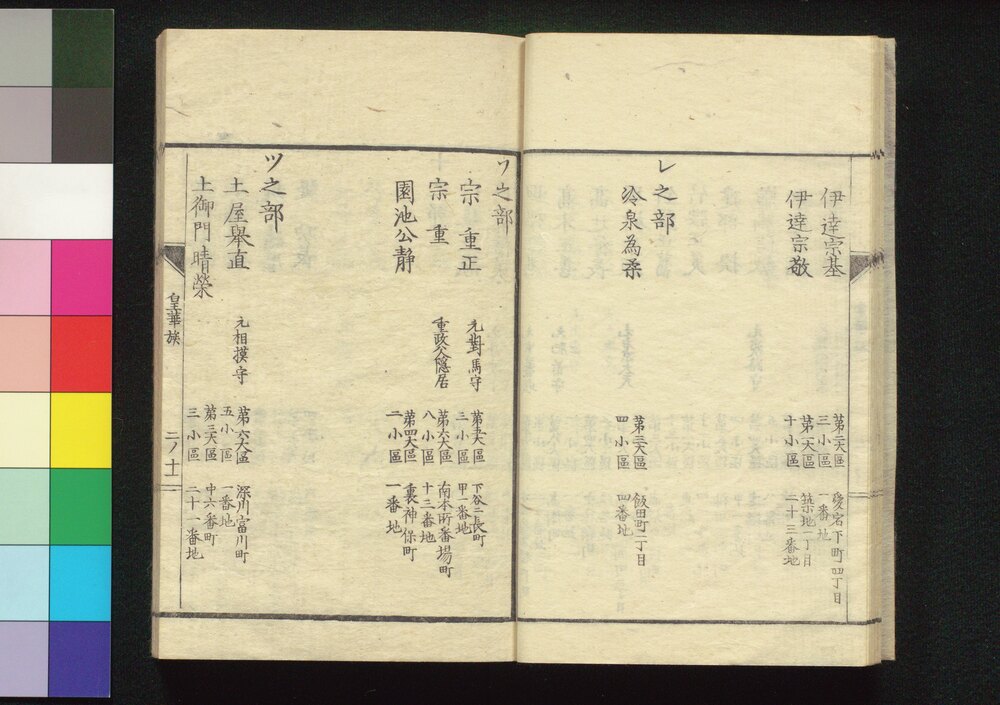 伊達宗基
第二大區 愛宕下町四丁目
三小區 一番地
伊達宗敬
第一大區 築地一丁目
十小區 二十三番地
レ之部
冷泉為柔
第三大區 飯田町二丁目
四小區 四番地
ソ之部
宗 重正
元對馬守
第五大區 下谷二長町
三小區 甲一番地
宗 重
重政父隠居
第六大區 南本所番場町
八小區 十三番地
園池公静
第四大區 裏神保町
二小區 一番地
ツ之部
土屋擧直
元相摸守
第六大區 深川富川町
五小區 一番地
土御門晴榮
第三大區 中六番町
三小區 二十一番地
皇華族
二ノ十一